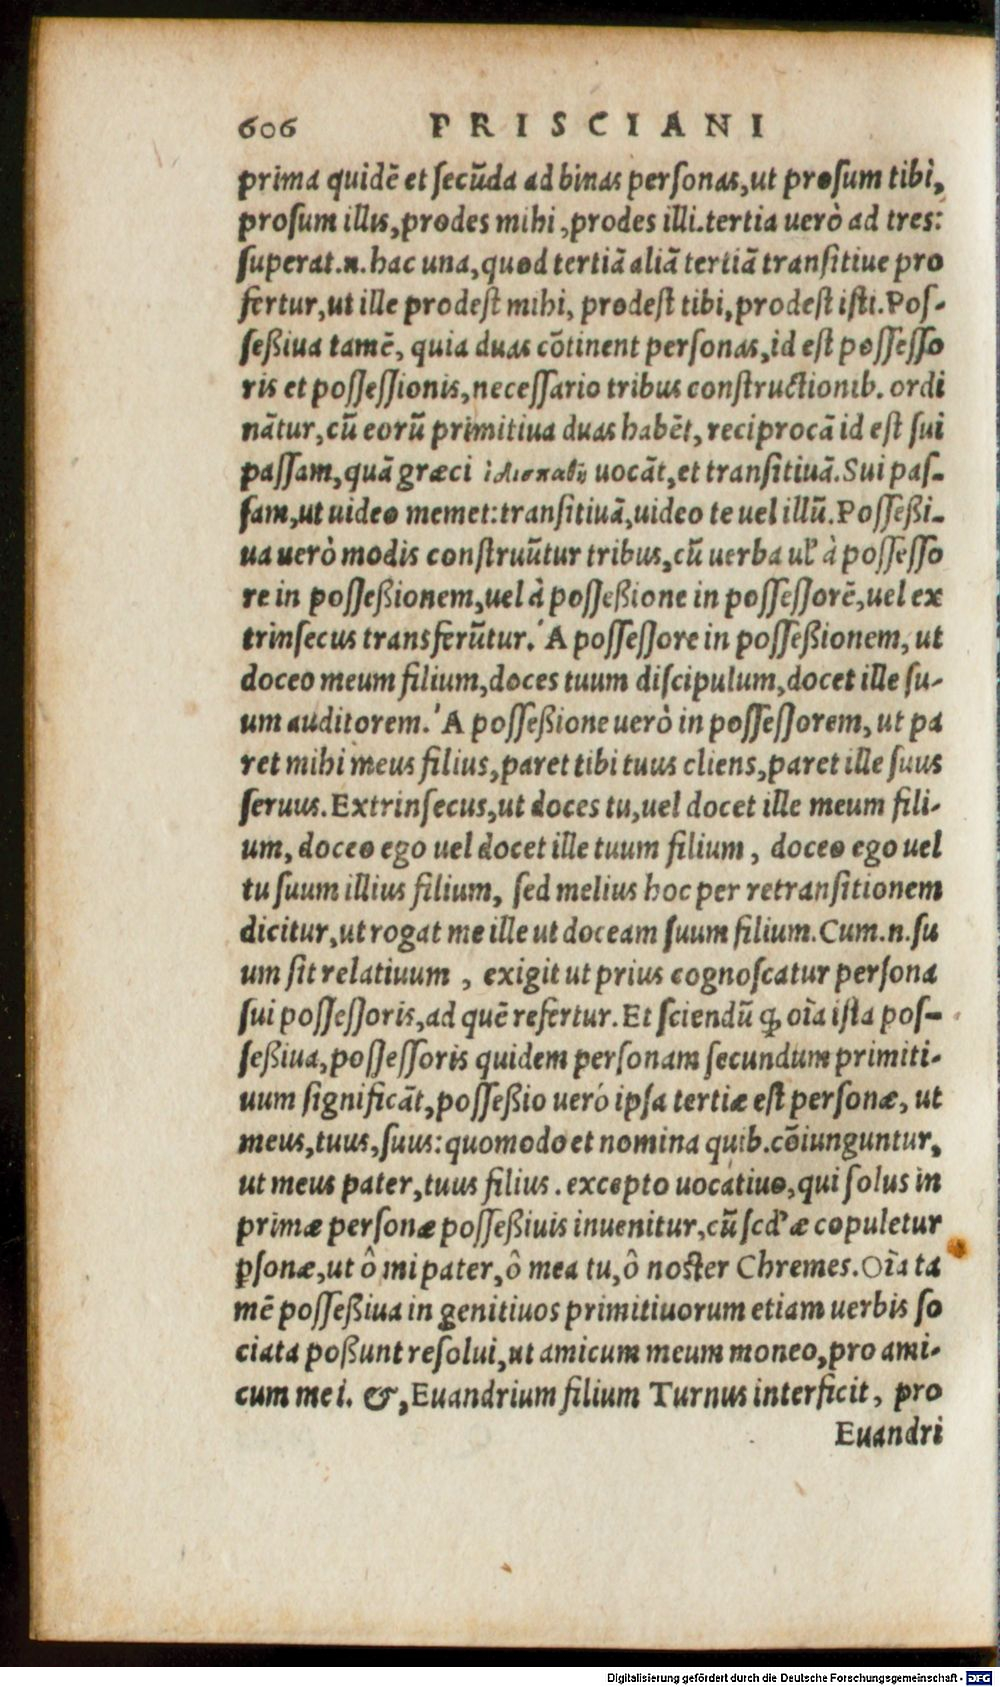 606 PRISCIANI
prima quidē et ſecūda ad binas perſonas,ut proſum tibi,
proſum illis,prodes mihi,prodes illi.tertia uerò ad tres:
ſuperat.n.hac una,quod tertiā aliā tertiā tranſitiue pro
fertur,ut ille prodeſt mihi, prodeſt tibi,prodeſt iſti.Poſ-
ſeßiua tamē, quia duas cōtinent perſonas,id eſt poſſeſſo
ris et poſſeſſionis,neceſſario tribus conſtructionib. ordi
nātur,cū eorū primitiua duas habēt,reciprocā id eſt ſui
paſſam,quā græci uocāt,et tranſitiuā.Sui paſ-
ſam,ut uideo memet:tranſitiuā,uideo te uel illū.Poſſeßi-
ua uerò modis conſtruūtur tribus,cū uerba ul' à poſſeſſo
re in poſſeßionem,uel à poſſeßione in poſſeſſorē,uel ex
trinſecus transferūtur.'A poſſeſſore in poſſeßionem, ut
doceo meum filium,doces tuum diſcipulum,docet ille ſu-
um auditorem.'A poſſeßione uerò in poſſeſſorem, ut pa
ret mihi meus filius,paret tibi tuus cliens,paret ille ſuus
ſeruus.Extrinſecus,ut doces tu,uel docet ille meum fili-
um, doceo ego uel docet ille tuum filium, doceo ego uel
tu ſuum illius filium, ſed melius hoc per retranſitionem
dicitur,ut rogat me ille ut doceam ſuum filium.Cum.n.ſu
um ſit relatiuum, exigit ut prius cognoſcatur perſona
ſui poſſeſſoris,ad quē refertur.Et ſciendū ꝙ oīa iſta poſ-
ſeßiua,poſſeſſoris quidem perſonam ſecundum primiti-
uum ſignificāt,poſſeßio ueró ipſa tertiæ eſt perſonæ, ut
meus,tuus,ſuus:quomodo et nomina quib.cōiunguntur,
ut meus pater,tuus filius.excepto uocatiuo,qui ſolus in
primæ perſonæ poſſeßiuis inuenitur,cū ſcd'æ copuletur
ꝑſonæ,ut ô mi pater,ô mea tu,ô noſter Chremes.Oīa ta
mē poſſeßiua in genitiuos primitiuorum etiam uerbis ſo
ciata poßunt reſolui,ut amicum meum moneo,pro ami-
cum mei. &,Euandrium filium Turnus interficit, pro
Euandri
Digitalisierung gefördert durch die Deutsche Forschungsgemeinschaft - DFG